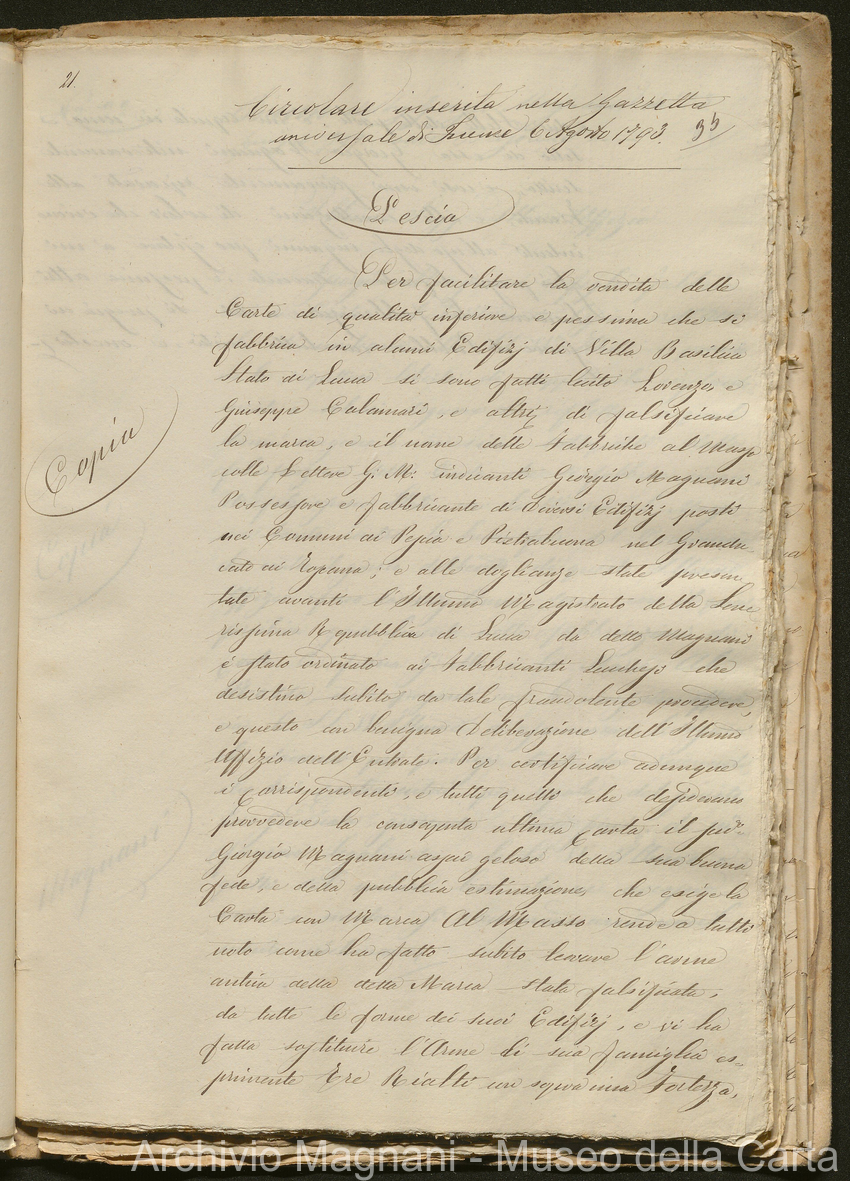 21.
Circolare inserita nella Gazzetta
universale di Firenze 6 Agosto 1793.
35
Pescia
Per facilitare la vendita delle
Carte di qualità inferiore e pessima che si
fabbrica in alcuni Edifizj di Villa Basilica
Stato di Lucca si sono fatti lecito Lorenzo, e
Giuseppe Calamari, e altrj di falsificare
la marca, e il nome delle Fabbriche al Masso
colle Lettere G. M: indicanti Giorgio Magnani
Possessore e fabbricante di diversi Edifizj posti
nei Comuni di Pescia e Pietrabuona nel Grandu-
cato di Toscana; e alle doglianze state presen
tate avanti l'Illumo Magistrato della Sere
nissima Repubblica di Lucca da detto Magnani
é stato ordinato ai Fabbricanti Lucchesi che
desistino subito da tale fraudolente procedere,
e questo con benigna Deliberazione dell'Illumo
Uffizio dell'Entrate. Per certificare adunque
i Corrispondenti, e tutti quelli che desiderano
provvedere la consaputa ottima Carta il
Giorgio Magnani assai geloso della sua buona
fede, e della pubblica estimazione, che esige la
Carta con Marca Al Masso rende a tutti
noto come ha fatto subito levare l'arme
antica della detta Marca stata falsificata,
da tutte le forme dei suoi Edifizj, e vi ha
fatta sostituire l'Arme di sua famiglia es=
primente Tre Rialti con sopra una Fortezza,
Copia
Magnani
Archivio Magnani - Museo della Carta